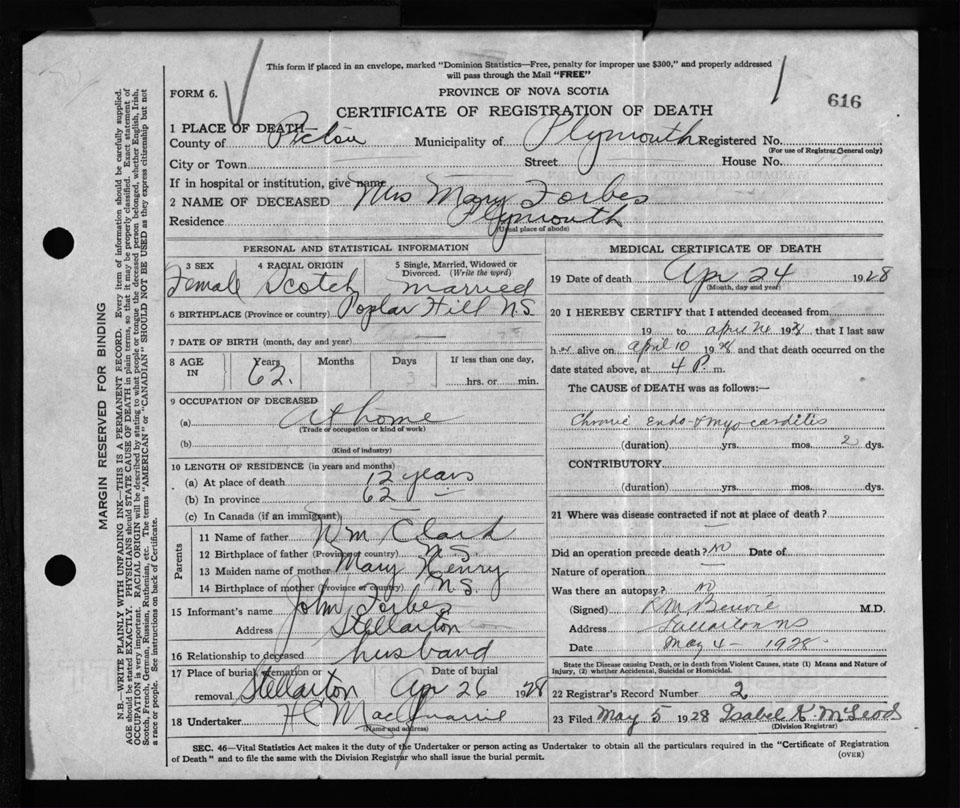 This form if placed in an envelope, marked "Dominion Statistics—Free, penalty for improper use $300," and properly addressed
will pass through the Mail "FREE"
FORM 6.
PROVINCE OF NOVA SCOTIA
616
CERTIFICATE OF REGISTRATION OF DEATH
1 PLACE OF DEATH
County of Pictou Municipality of Plymouth Registered No.
(For use of Registrar General only)
City or Town Street House No.
If in hospital or institution, give name
2 NAME OF DECEASED Mrs Mary Forbes
Residence Plymouth
(Usual place of abode)
PERSONAL AND STATISTICAL INFORMATION
3 SEX 4 RACIAL ORIGIN 5 Single, Married, Widowed or
Divorced. (Write the word)
Female Scotch married
6 BIRTHPLACE (Province or country) Poplar Hill N.S.
7 DATE OF BIRTH (month, day and year) —
8 AGE IN Years Months Days If less than one day,
62. hrs. or min.
9 OCCUPATION OF DECEASED
(a) At home
(Trade or occupation or kind of work)
(b)
(Kind of industry)
10 LENGTH OF RESIDENCE (in years and months)
(a) At place of death 12 years
(b) In province 62 —
(c) In Canada (if an immigrant)
Parents
11 Name of father Wm Clark
12 Birthplace of father (Province or country) N.S.
13 Maiden name of mother Mary Henry
14 Birthplace of mother (Province or country) N.S.
15 Informant's name John Forbes
Address Stellarton
16 Relationship to deceased husband
17 Place of burial, cremation or Date of burial
removal. Stellarton Apr 26 1928
18 Undertaker H C MacQuarrie
(Name and address)
MEDICAL CERTIFICATE OF DEATH
19 Date of death Apr 24 1928
(Month, day and year)
20 I HEREBY CERTIFY that I attended deceased from
19 to April 24 1928 that I last saw
her alive on April 10 1928 and that death occurred on the
date stated above, at 4 P. m.
The CAUSE of DEATH was as follows:—
Chronic Endo- & myo-carditis
(duration) yrs. mos. 2 dys.
CONTRIBUTORY
(duration) yrs. mos. dys.
21 Where was disease contracted if not at place of death?
—
Did an operation precede death? No Date of
Nature of operation —
Was there an autopsy? No
(Signed) M.D.
Address Stellarton NS
Date May 4 - 1928
State the Disease causing Death, or in death from Violent Causes, state (1) Means and Nature of
Injury, (2) whether Accidental, Suicidal or Homicidal.
22 Registrar's Record Number 2
23 Filed May 5 1928 Isabel K McLeod
(Division Registrar)
SEC. 46—Vital Statistics Act makes it the duty of the Undertaker or person acting as Undertaker to obtain all the particulars required in the "Certificate of Registration
of Death" and to file the same with the Division Registrar who shall issue the burial permit.
(OVER)
MARGIN RESERVED FOR BINDING
N.B.—WRITE PLAINLY WITH UNFADING INK—THIS IS A PERMANENT RECORD. Every item of information should be carefully supplied.
AGE should be stated EXACTLY. PHYSICIANS should STATE CAUSE OF DEATH in plain terms, so that it may be properly classified. Exact statement of
OCCUPATION is very important. RACIAL ORIGIN will be described by stating to what people or tongue the deceased person belonged, whether English, Irish,
Scotch, French, German, Russian, Ruthenian, etc. The terms "AMERICAN" or "CANADIAN" SHOULD NOT BE USED as they express citizenship but not
a race or people. See instructions on back of Certificate.